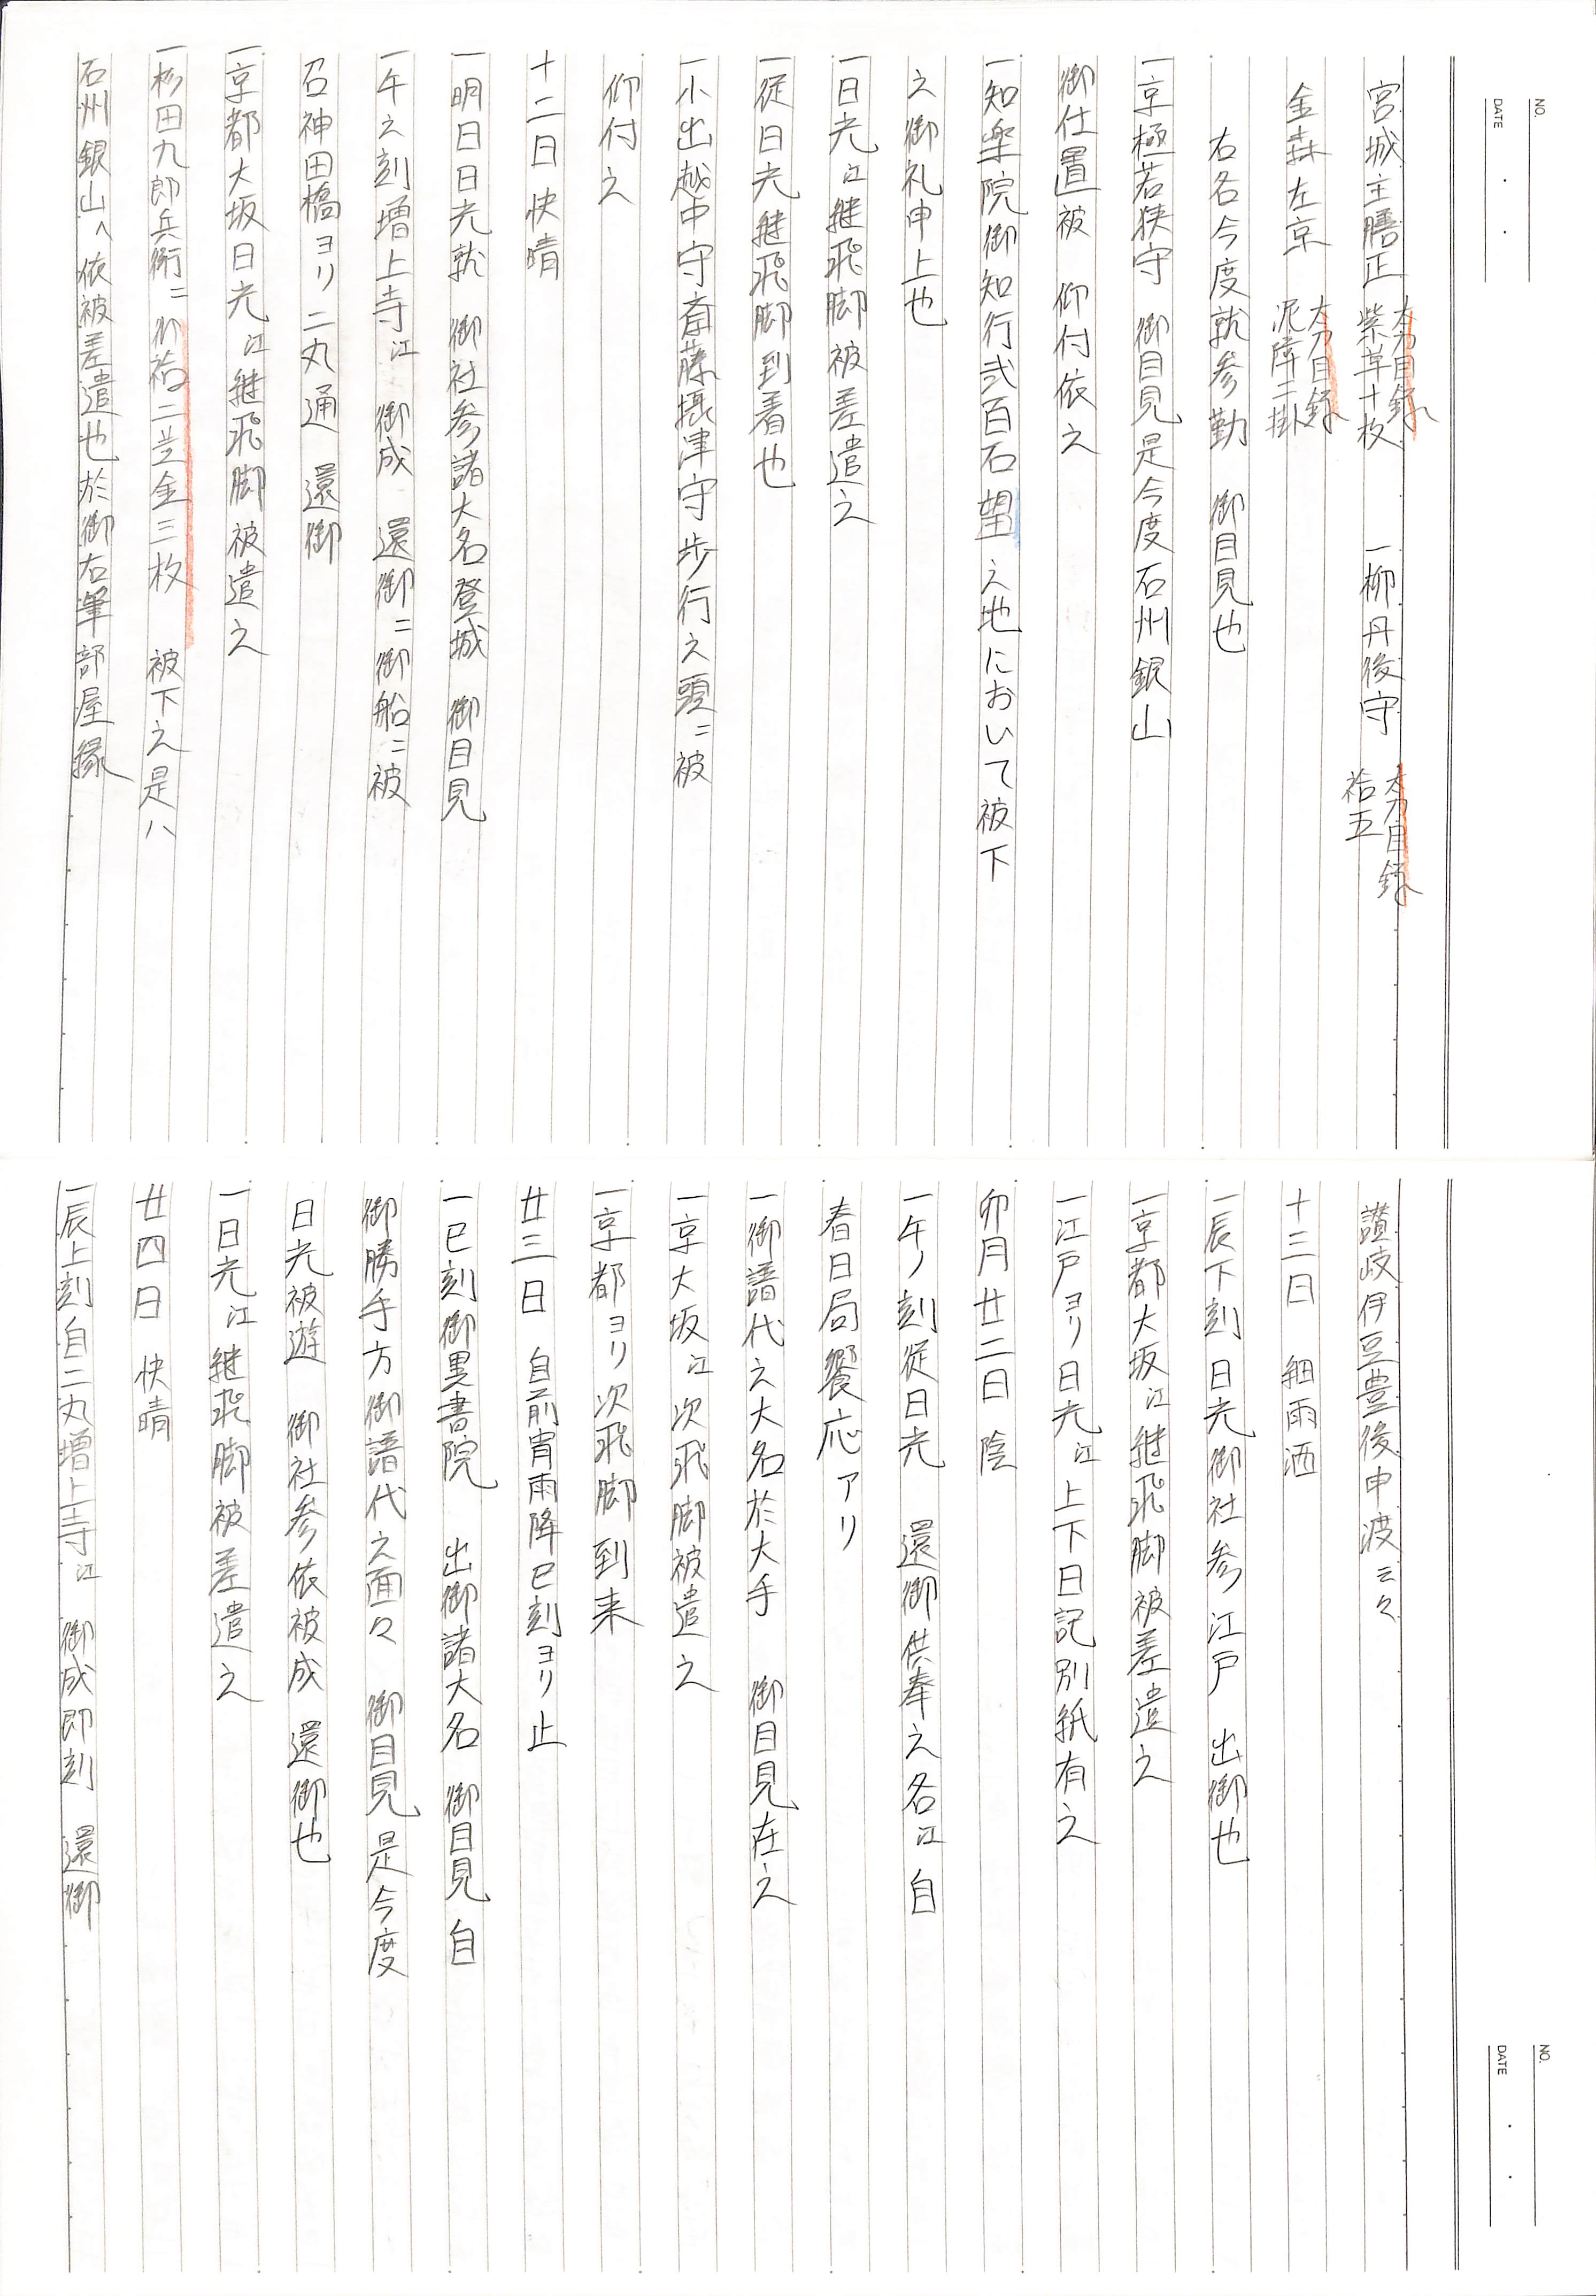 NO.
DATE ・ ・
宮城主膳正 太刀目録 紫革十枚 一柳丹後守 太刀目録 袷五
金森左京 太刀目録 泥障二掛
右名今度就参勤 御目見也
一京極若狭守 御目見是今度石州銀山
御仕置被 仰付依之
一知楽院御知行弐百石望之地において被下
之御礼申上也
一日光江継飛脚被差遣之
一従日光継飛脚到着也
一小出越中守斎藤摂津守歩行之頭ニ被
仰付之
十二日 快晴
一明日日光就 御社参諸大名登城 御目見
一午之刻増上寺江 御成 還御ニ御船ニ被
召神田橋ヨリ二丸通 還御
一京都大坂日光江継飛脚被遣之
一杉田九郎兵衛ニ 袷二並金三枚 被下之是ハ
石州銀山へ依被差遣也於御右筆部屋縁
NO.
DATE ・ ・
讃岐伊豆豊後申渡云々
十三日 細雨洒
一辰下刻日光御社参江戸 出御也
一京都大坂江継飛脚被差遣之
一江戸ヨリ日光江上下日記別紙有之
卯月廿二日 陰
一午ノ刻従日光 還御供奉之名江自
春日局饗応アリ
一御譜代之大名於大手 御目見在之
一京大坂江次飛脚被遣之
一京都ヨリ次飛脚到来
廿三日 自前宵雨降巳刻ヨリ止
一巳刻御黒書院 出御諸大名 御目見自
御勝手方御譜代之面々 御目見是今度
日光被遊 御社参依被成 還御也
一日光江継飛脚被差遣之
廿四日 快晴
一辰上刻自二丸増上寺江 御成即刻 還御